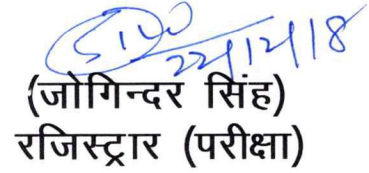 22/12/18
(जोगिन्दर सिंह)
रजिस्ट्रार (परीक्षा)